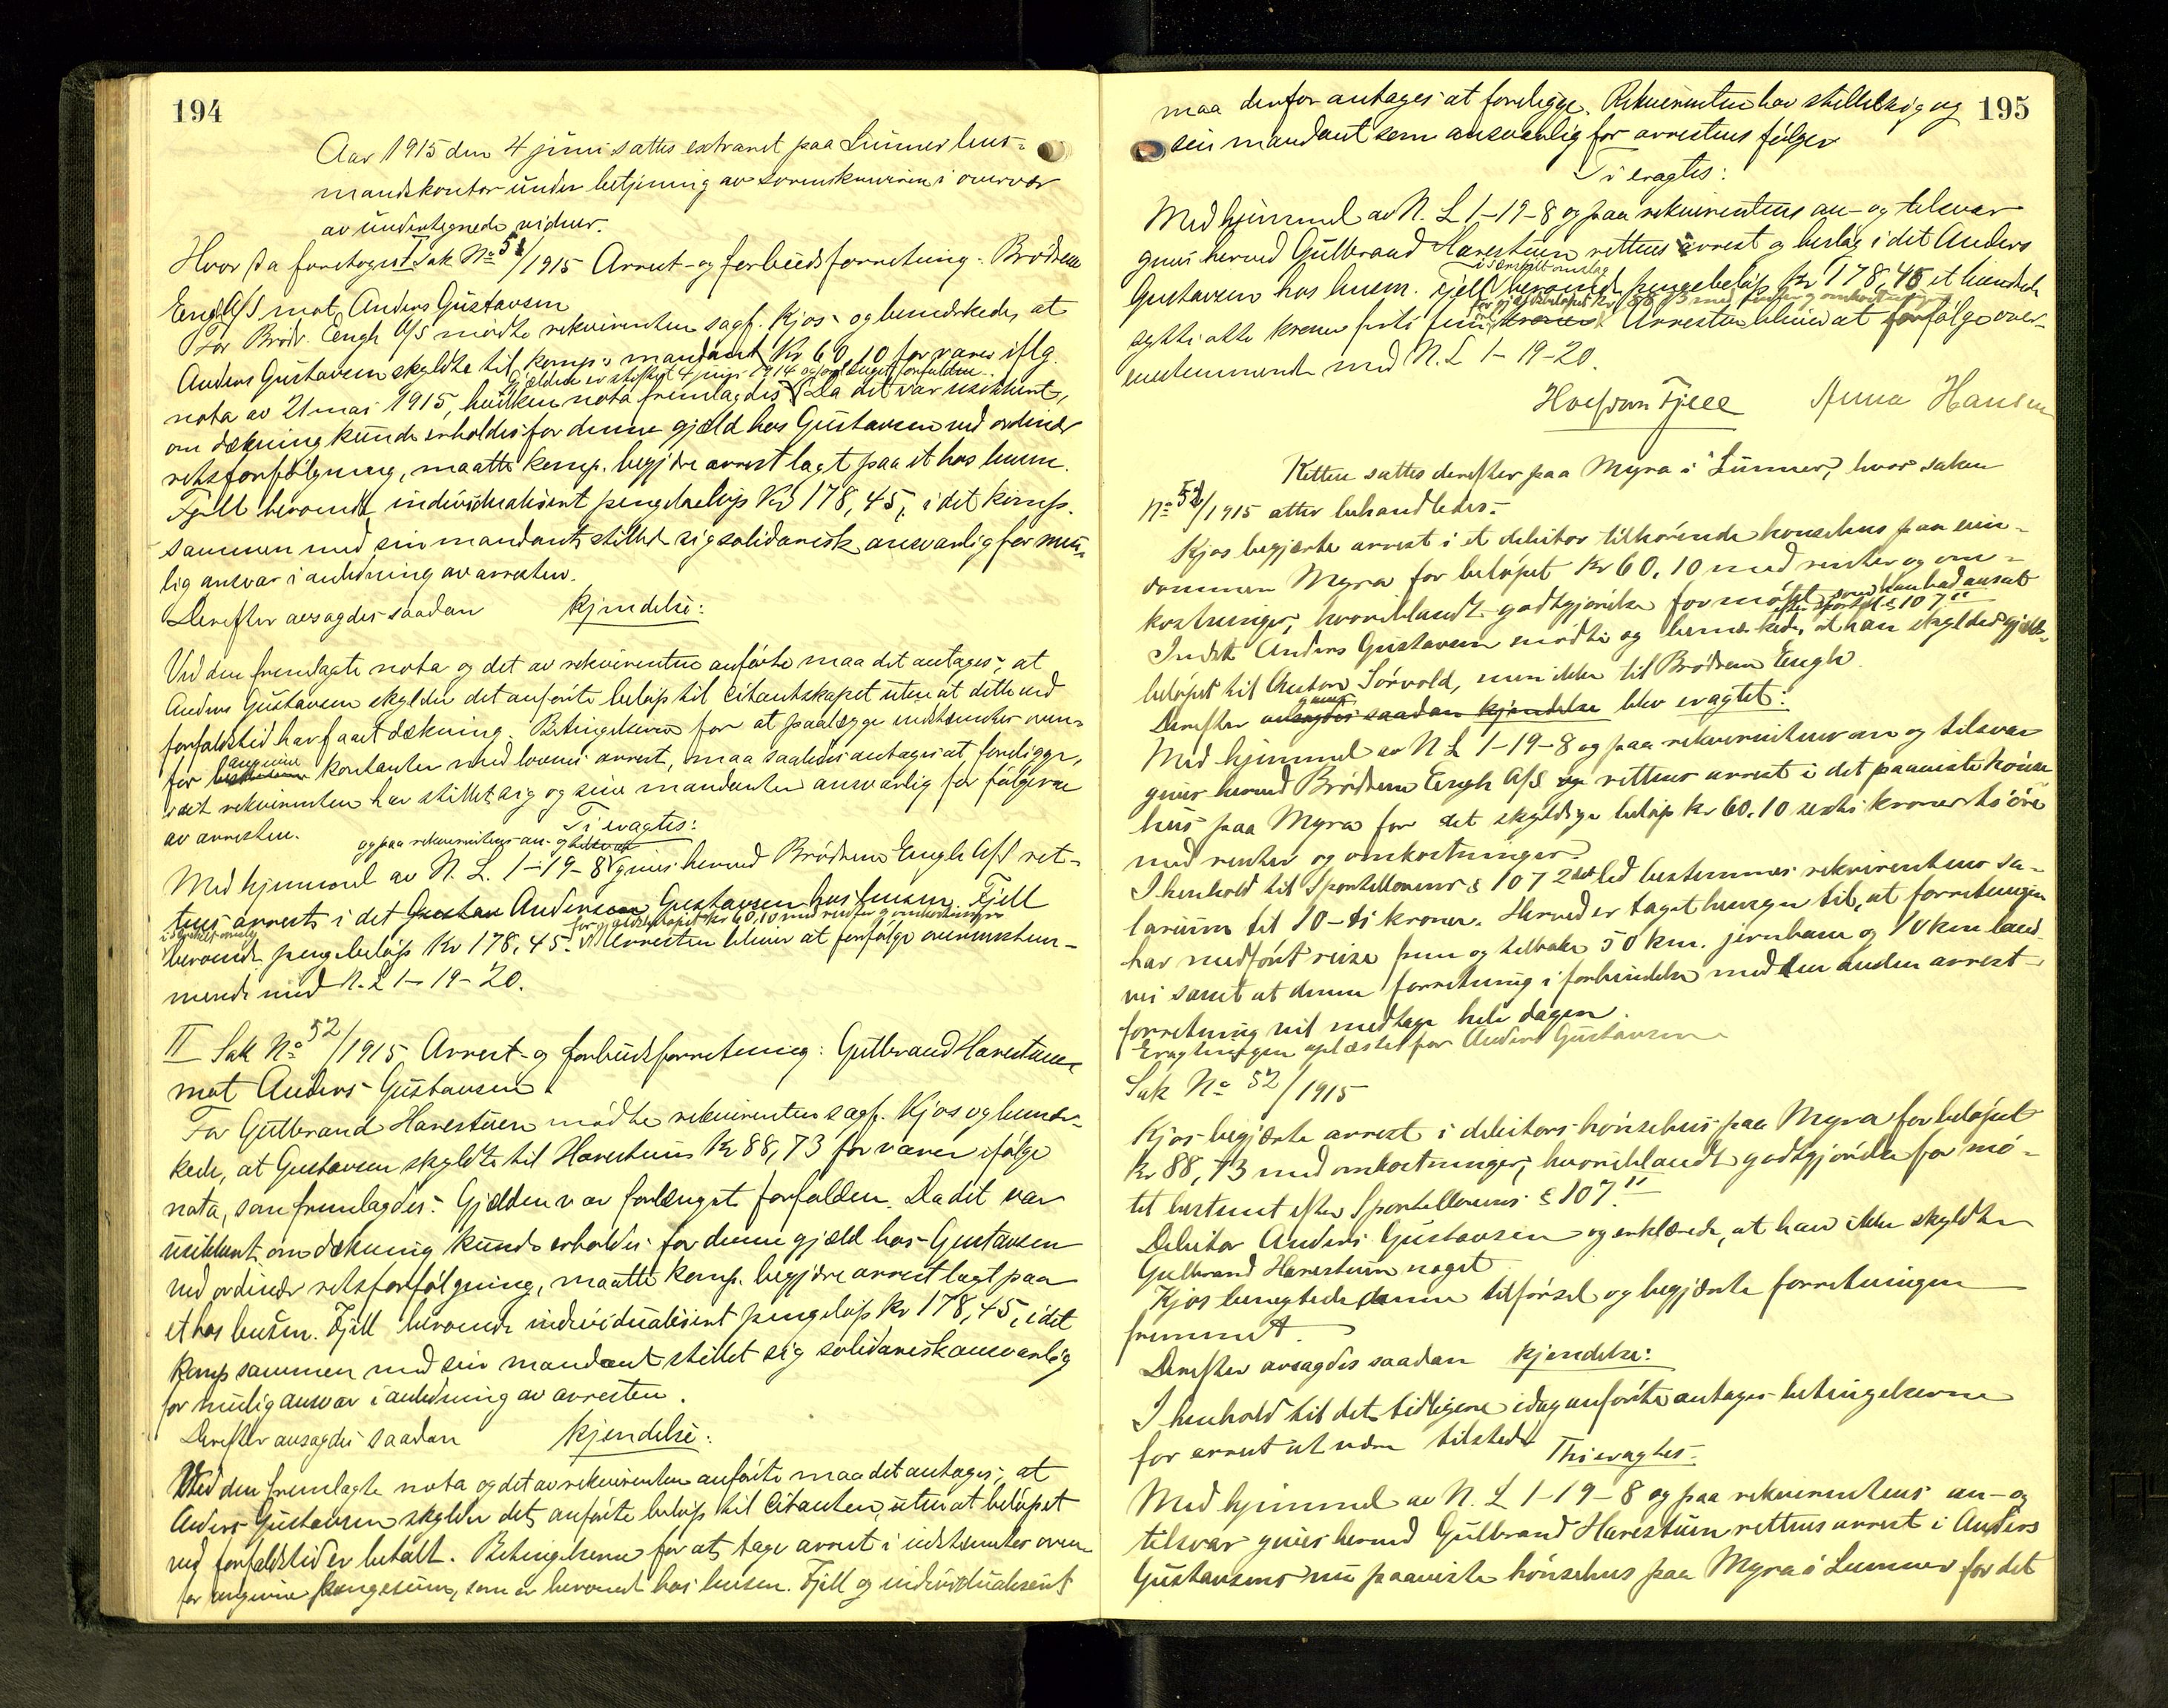 194
Aar 1915 den 4 juni sattes extraret paa Lunner lens-
mandskontor under betjening av sorenskriveren i overvær
av undertegnede vidner.
Hvor da foretoges I Sak No 51/1915 Arrest- og forbudsforretning: Brødrene
Engh A/S mot Anders Gustavsen
For Brødr. Engh A/S mødte rekvirenten sagf. Kjos og bemerkede, at
Anders Gustavsen skyldte til komp.s mandant Kr 60,10 for varer iflg.
Gjælden er stiftet 4 juni 1914 og forlængst forfalden.
nota av 21 mai 1915, hvilken nota fremlagdes. Da det var usikkert,
om dækning kunde erholdes for denne gjæld hos Gustavsen ved ordinær
retsforfølgning, maatte komp. begjære arrest lagt paa et hos lensm.
Fjell beroende individualisert pengebeløp Kr 178,45, idet komp.
sammen med sin mandant stillet sig solidarisk ansvarlig for mu-
lig ansvar i anledning av arresten.
Derefter avsagdes saadan kjendelse:
Ved den fremlagte nota og det av rekvirenten anførte maa det antages, at
Anders Gustavsen skylder det anførte beløp til Citantskapet uten at dette ved
forfaldstid har faaet dækning. Betingelserne for at paalægge indstevnter oven-
for angivne kontanter med lovens arrest, maa saaledes antages at foreligge,
idet rekvirenten har stillet sig og sine mandanter ansvarlig for følgerne
av arresten. Ti eragtes:
og paa rekvirentens an- og tilsvar
Med hjemmel av N. L. 1-19-8 gives herved Brødrene Engh A/S ret-
tens arrest i det Gustav Anders Gustavsen hos lensm. Fjell
i særskilt omslag for gjældsbeløpet Kr 60,10 med renter og omkostninger
beroende pengebeløp Kr 178,45. Arresten bliver at forfølge overensstem-
mende med N. L 1-19-20.
II Sak No 52/1915 Arrest- og forbudsforretning: Gulbrand Harestuen
mot Anders Gustavsen.
For Gulbrand Harestuen mødte rekvirenten sagf. Kjos og bemer-
kede, at Gustavsen skyldte til Harestuen Kr 88,73 for varer ifølge
nota, som fremlagdes. Gjælden var forlængst forfalden. Da det var
usikkert om dækning kunde erholdes for denne gjæld hos Gustavsen
ved ordinær retsforfølgning, maatte komp. begjære arrest lagt paa
et hos lensm. Fjell beroende individualisert pengeløp Kr 178,45, idet
komp sammen med sin mandant stillet sig solidarisk ansvarlig
for mulig ansvar i anledning av arresten.
Derefter avsagdes saadan kjendelse:
Ved den fremlagte nota og det av rekvirenten anførte maa det antages, at
Anders Gustavsen skylder det anførte beløp til Citanten, uten at beløpet
ved forfaldstid er betalt. Betingelserne for at tage arrest i indstevnter oven-
for angivne pengesum, som er beroende hos lensm. Fjell og individualisert
195
maa derfor antages at foreligge. Rekvirenten har stillet sig og
sin mandant som ansvarlig for arrestens følger
Ti eragtes:
Med hjemmel av N. L 1-19-8 og paa rekvirentens an- og tilsvar
gives herved Gulbrand Harestuen rettens arrest og beslag i det Anders
i særskilt omslag
Gustavsen hos lensm. Fjell beroende pengebeløp Kr 178,45 et hundrede
for gjældsbeløpet Kr 88,73 med renter og omkostninger
sytti otte kroner firti fem øre kroner. Arresten bliver at forfølge over-
ensstemmende med N. L 1-19-20.
Halfdan Fjell Anna Hansen
Retten sattes derefter paa Myra i Lunner, hvor saken
No 51/1915 atter behandledes.
Kjos begjærte arrest i et debitor tilhørende hønsehus paa eien-
dommen Myra for beløpet Kr 60,10 med renter og om-
kostninger, hvoriblandt godtgjørelse for møtet som han had ansat
efter sportell. § 107 II
Indst Anders Gustavsen mødte og bemerkede, at han skyldte gjælds-
beløpet til Anton Sørvold, men ikke til Brødrene Engh.
Derefter avsagdes saadan kjendelse blev eragtet:
Med hjemmel av N L 1-19-8 og paa rekvirentens an og tilsvar
gives herved Brødrene Engh A/S rettens arrest i det paaviste hønse
hus paa Myra for det skyldige beløp Kr 60.10 seksti kroner ti øre
med renter og omkostninger.
I henhold til Sportellovens § 107 2det led bestemmes rekvirentens sa-
larium til 10 - ti kroner. Herved er taget hensyn til, at forretningen
har medført reise frem og tilbake 50 km. jernbane og 10 km land-
vei samt at denne forretning i forbindelse med den anden arrest
forretning vil medtage hele dagen.
Eragtningen oplæstes for Anders Gustavsen
Sak No 52/1915
Kjos begjærte arrest i debitors hønsehus paa Myra for beløpet
Kr 88,73 med omkostninger, hvoriblandt godtgjørelse for mø-
tet bestemt efter Sportellovens § 107 II
Debitor Anders Gustavsen og erklærede, at han ikke skyldte
Gulbrand Harestuen noget
Kjos benegtede denne tilførsel og begjærte forretningen
fremmet.
Derefter avsagdes saadan kjendelse:
I henhold til det tidligere idag anførte antages betingelserne
for arrest at være tilstede Thi eragtes:
Med hjemmel av N. L 1-19-8 og paa rekvirentens an- og
tilsvar gives herved Gulbrand Harestuen rettens arrest i Anders
Gustavsens nu paaviste hønsehus paa Myra i Lunner for det